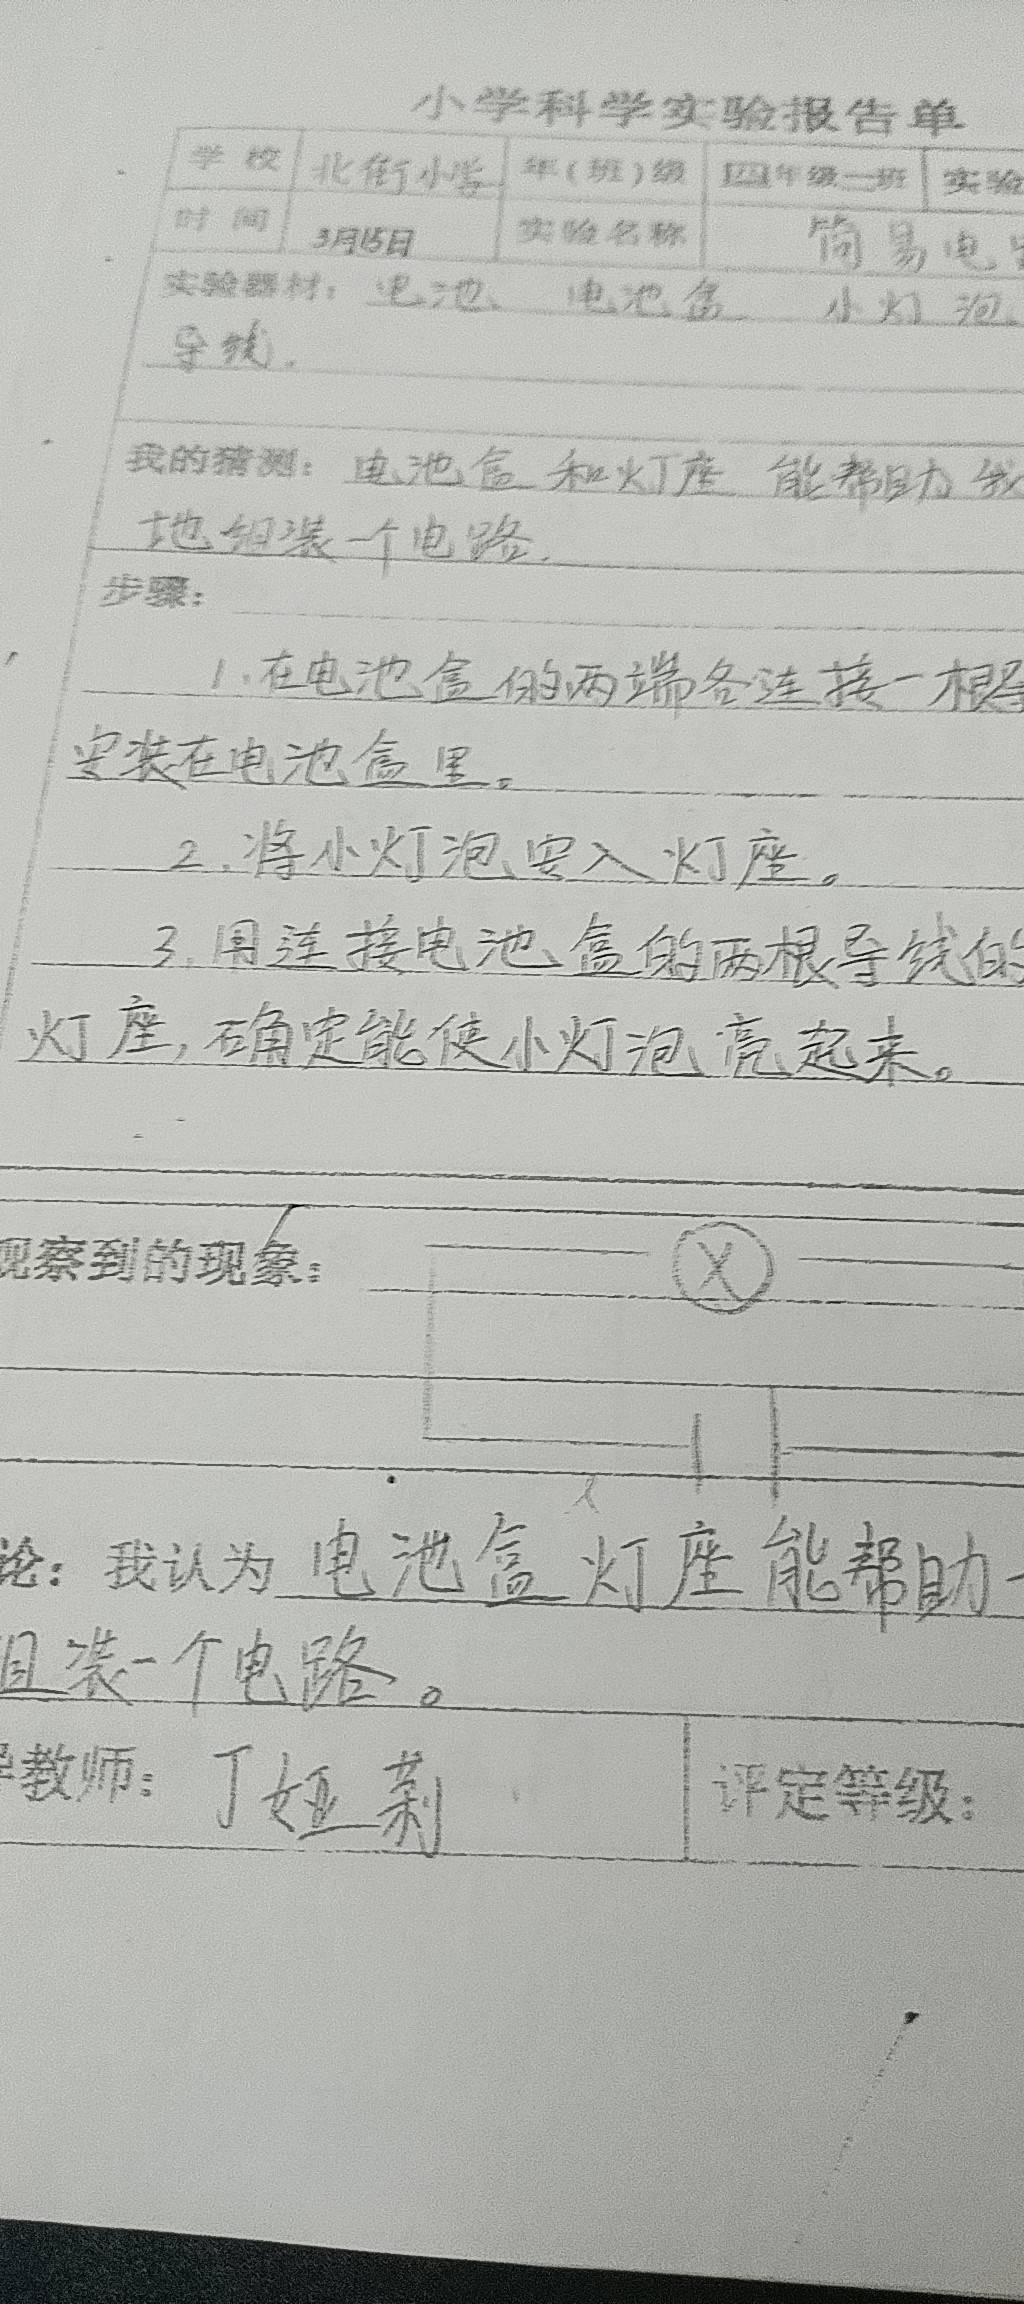 小学科学实验报告单
学 校 北街小学 年(班)级 四年级二班 实验
时 间 3月15日 实验名称 简易电
实验器材: 电池、 电池盒、 小灯泡、
导线.
我的猜测: 电池盒和灯座 能帮助我
地组装一个电路.
步骤:
1.在电池盒的两端各连接一根导
安装在电池盒里。
2.将小灯泡安入灯座。
3.用连接电池盒的两根导线的
灯座,确定能使小灯泡亮起来。
观察到的现象:
论: 我认为 电池盒灯座能帮助
组装一个电路。
导教师: 丁娅莉 评定等级: